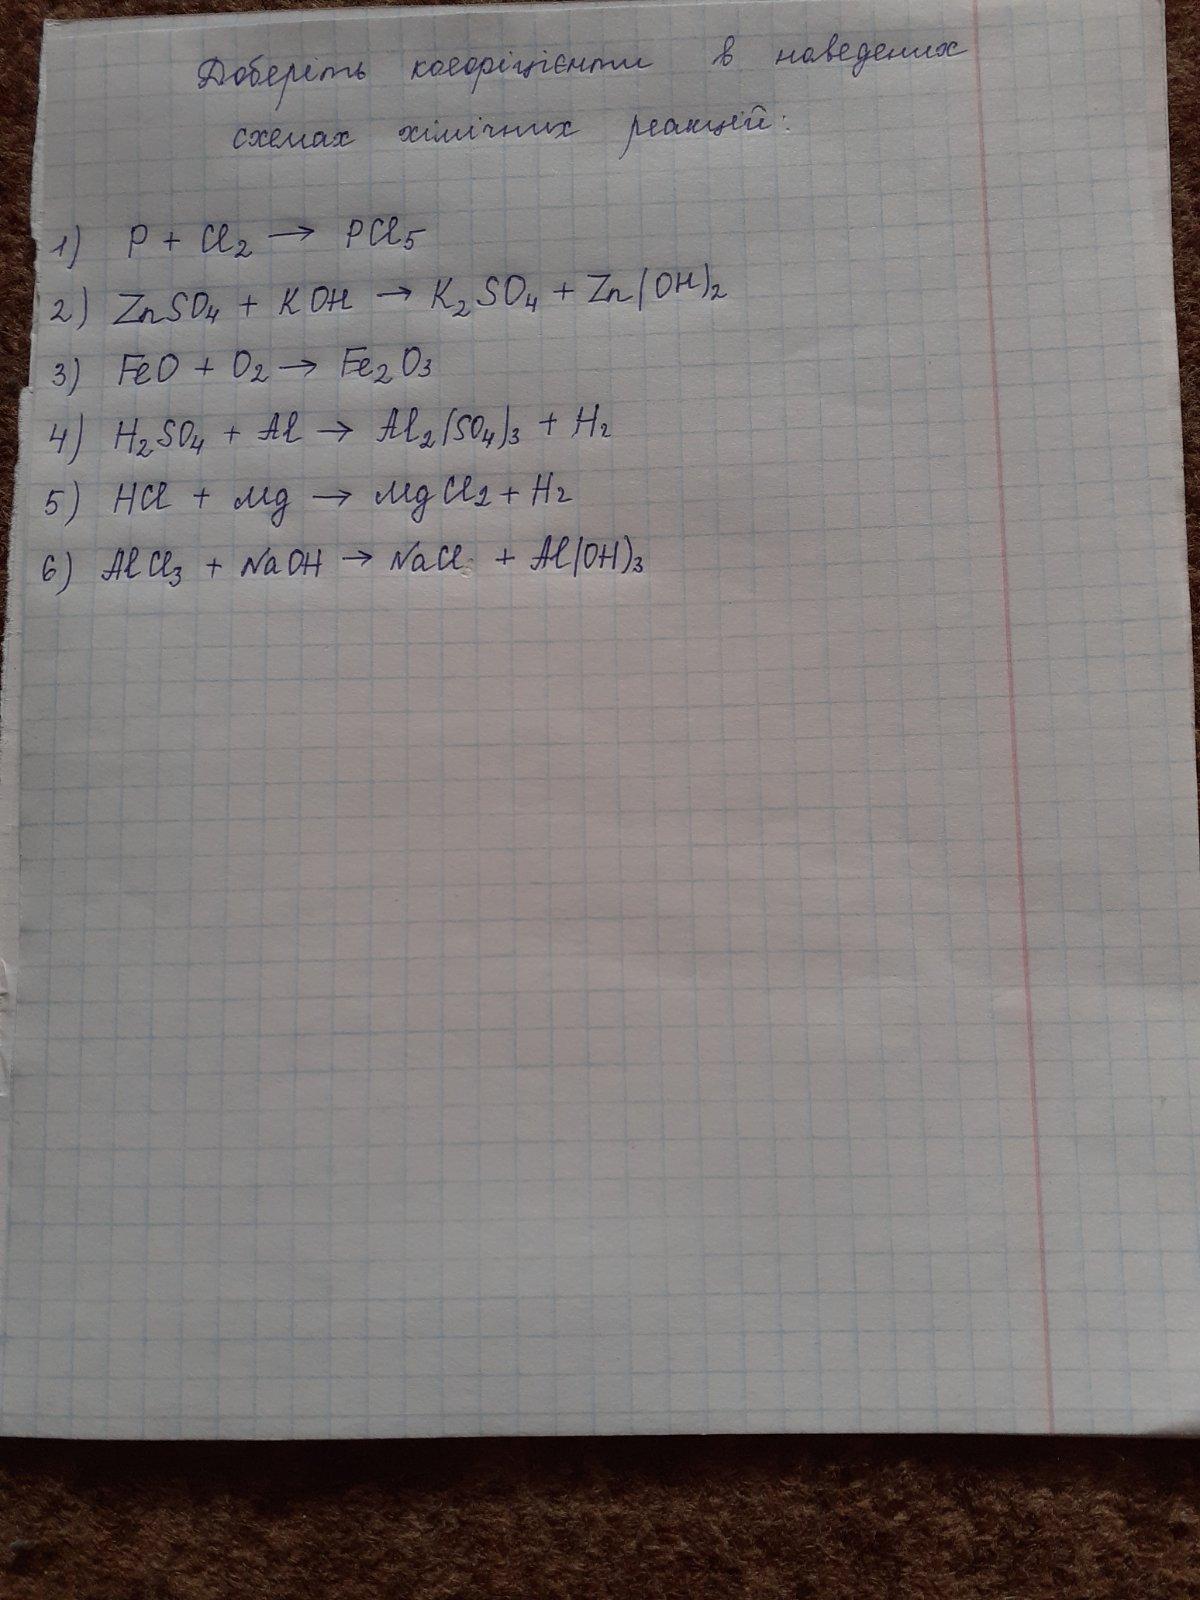 Доберіть коефіцієнти в наведених
схемах хімічних реакцій:
1) P + Cl₂ → PCl₅
2) ZnSO₄ + KOH → K₂SO₄ + Zn(OH)₂
3) FeO + O₂ → Fe₂O₃
4) H₂SO₄ + Al → Al₂(SO₄)₃ + H₂
5) HCl + Mg → MgCl₂ + H₂
6) AlCl₃ + NaOH → NaCl + Al(OH)₃